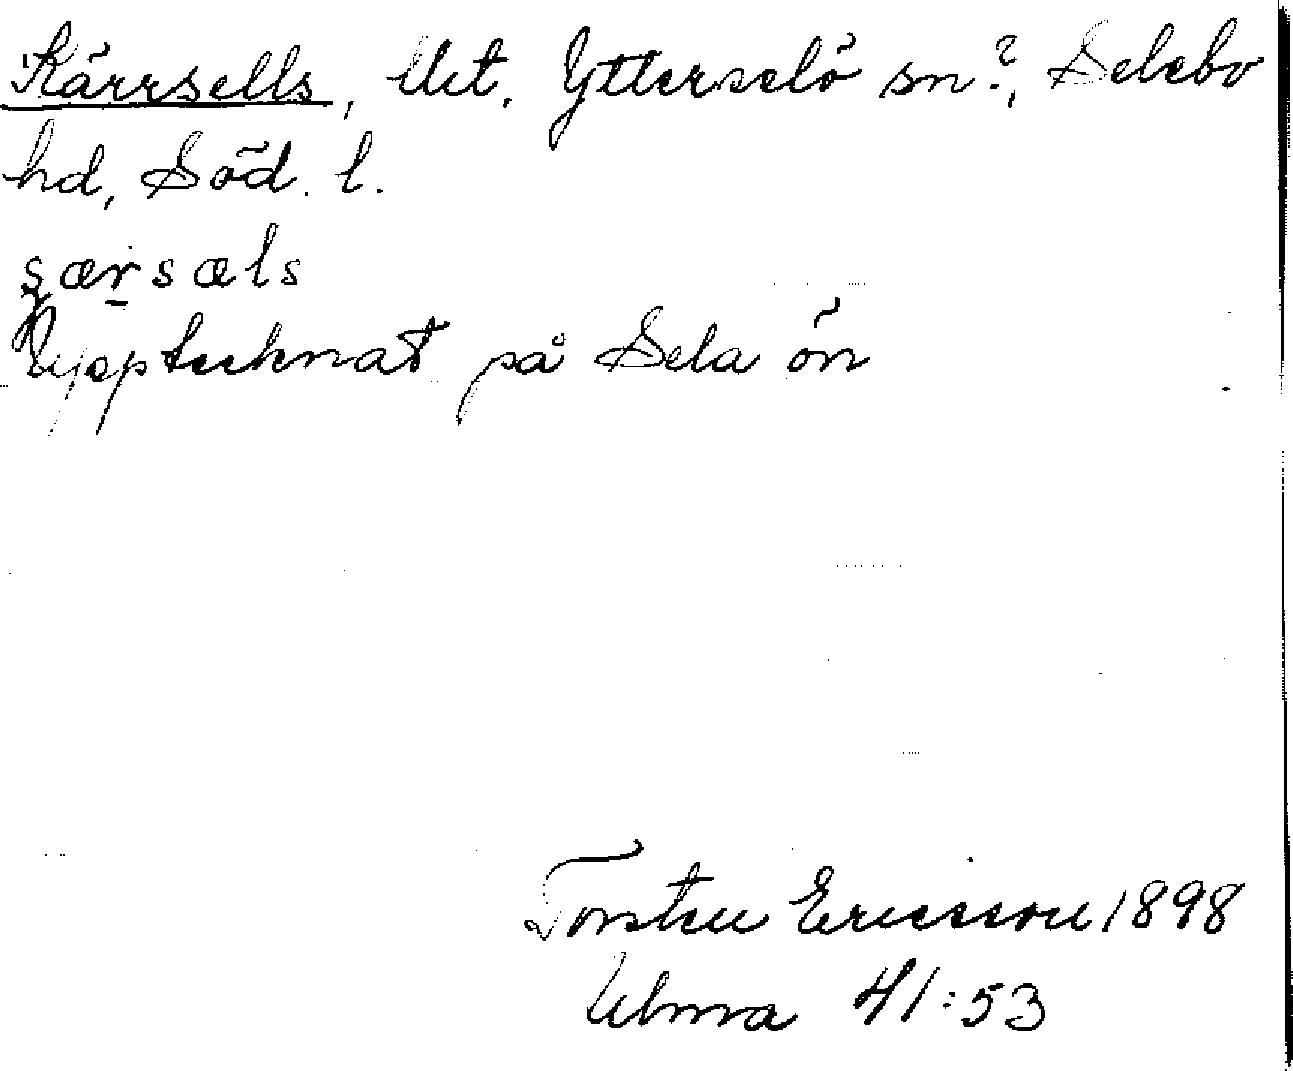 Kärrsells, Ut. Ytterselö sn?, Selebo
hd, Söd. l.
şærsæls
Upptecknat på Sela ön
Torsten Ericsson 1898
Ulma 41:53